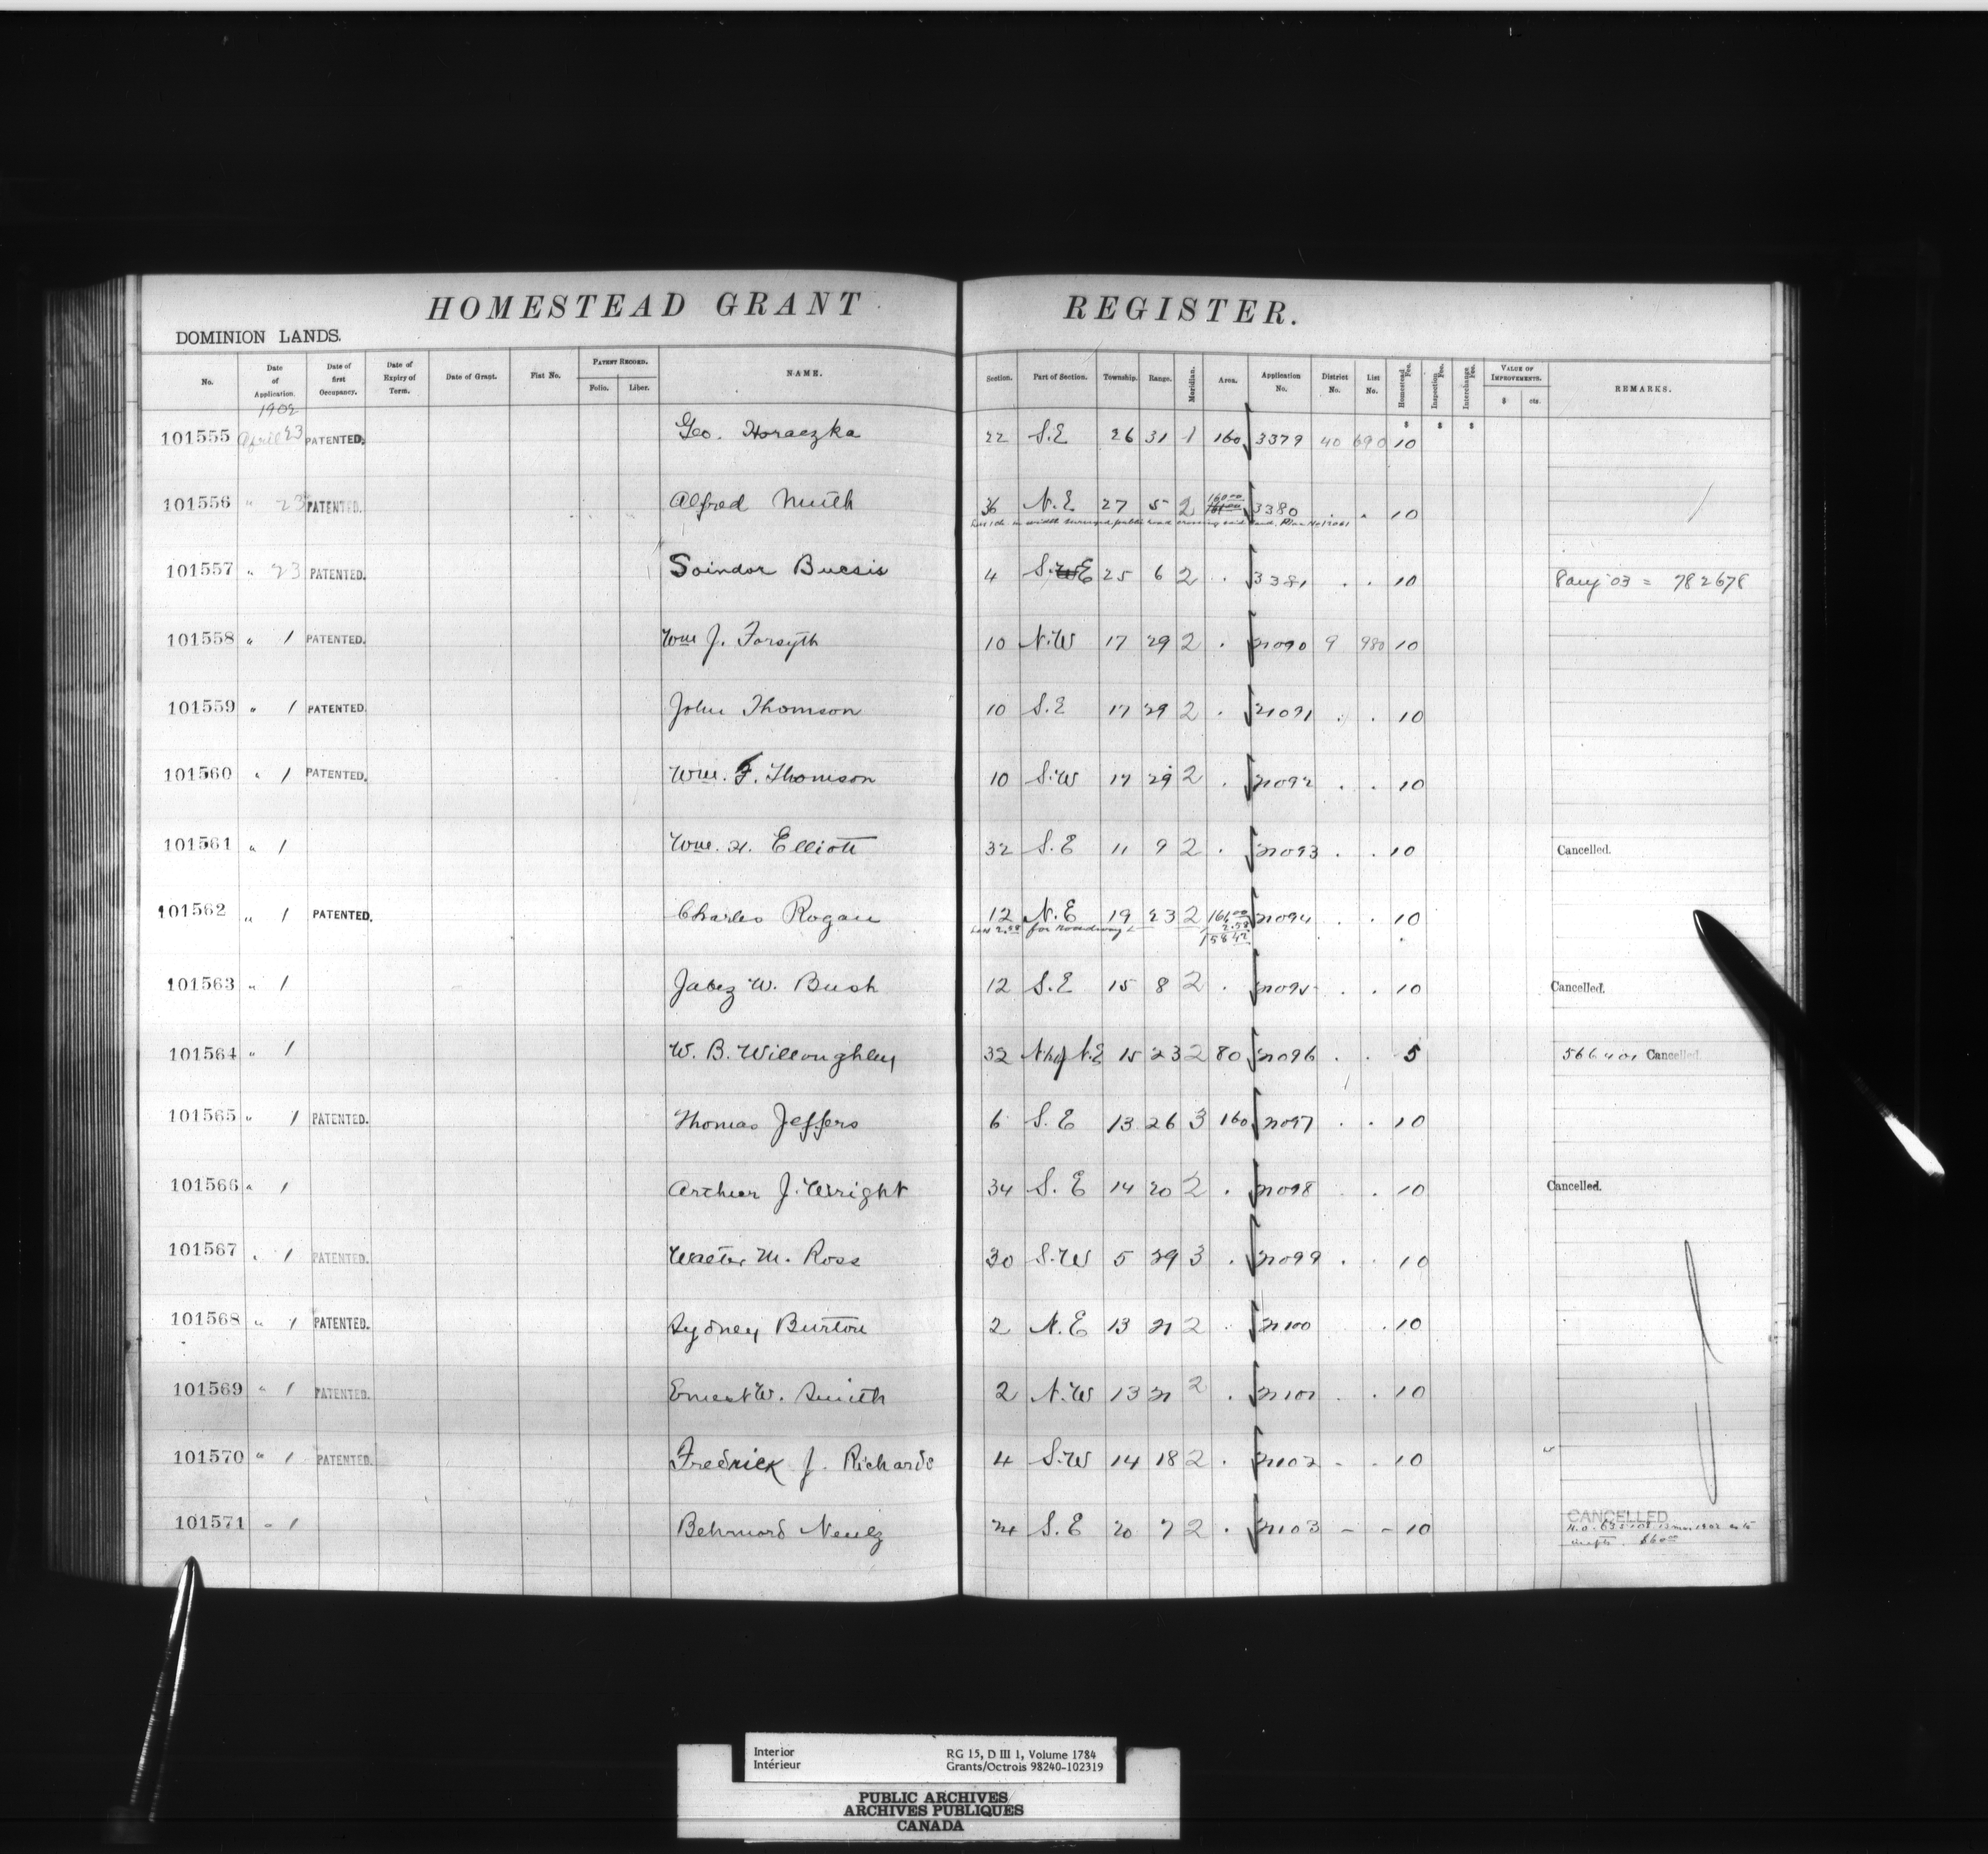 HOMESTEAD GRANT REGISTER.
DOMINION LANDS.
No. Date of Application. Date of first Occupancy. Date of Expiry of Term. Date of Grant. Fiat No. PATENT RECORD. Folio. Liber. NAME. Section. Part of Section. Township. Range. Meridian. Area. Application No. District No. List No. Homestead Fee. Inspection Fee. Interchange Fee. VALUE OF IMPROVEMENTS. $ cts. REMARKS.
1902 $ $ $
101555 April 23 PATENTED. Geo. Horaczka 22 S.E 26 31 1 160 3379 40 690 10
101556 " 23 PATENTED. Alfred Muth 36 N.E 27 5 2 160.00 3380 . . 10
101557 " 23 PATENTED. Soindor Bucsis 4 S.W E 25 6 2 . 3381 . . 10 8 Aug 03 = 782678
101558 " 1 PATENTED. Wm J. Forsyth 10 N.W 17 29 2 . 21090 9 980 10
101559 " 1 PATENTED. John Thomson 10 S.E 17 29 2 . 21091 . . 10
101560 " 1 PATENTED. Wm. F. Thomson 10 S.W 17 29 2 . 21092 . . 10
101561 " 1 Wm. H. Elliott 32 S.E 11 9 2 . 21093 . . 10 Cancelled.
101562 " 1 PATENTED. Charles Rogan 12 N.E 19 23 2 21094 . . 10
Less 2.58 for roadway 2.58
158.42
101563 " 1 Jabez W. Bush 12 S.E 15 8 2 . 21095 . . 10 Cancelled.
101564 " 1 W. B. Willoughley 32 N hf N.E 15 23 2 80 21096 . . 5 566401 Cancelled
101565 " 1 PATENTED. Thomas Jeffers 6 S.E 13 26 3 160 21097 . . 10
101566 " 1 Arthur J. Wright 34 S.E 14 20 2 . 21098 . 10 Cancelled.
101567 " 1 PATENTED. Walter M. Ross 30 S.W 5 29 3 . 21099 . . 10
101568 " 1 PATENTED. Sydney Burton 2 N.E 13 21 2 . 21100 . 10
101569 " 1 PATENTED. Ernest W. Smith 2 N.W 13 21 2 . 21101 . . 10
101570 " 1 PATENTED. Fredrick J. Richards 4 S.W 14 18 2 . 21102 - . 10
101571 " 1 Behrnord Neulz 24 S.E 20 7 2 . 21103 - - 10 CANCELLED
Interior
Intérieur
RG 15, D III 1, Volume 1784
Grants/Octrois 98240-102319
PUBLIC ARCHIVES
ARCHIVES PUBLIQUES
CANADA